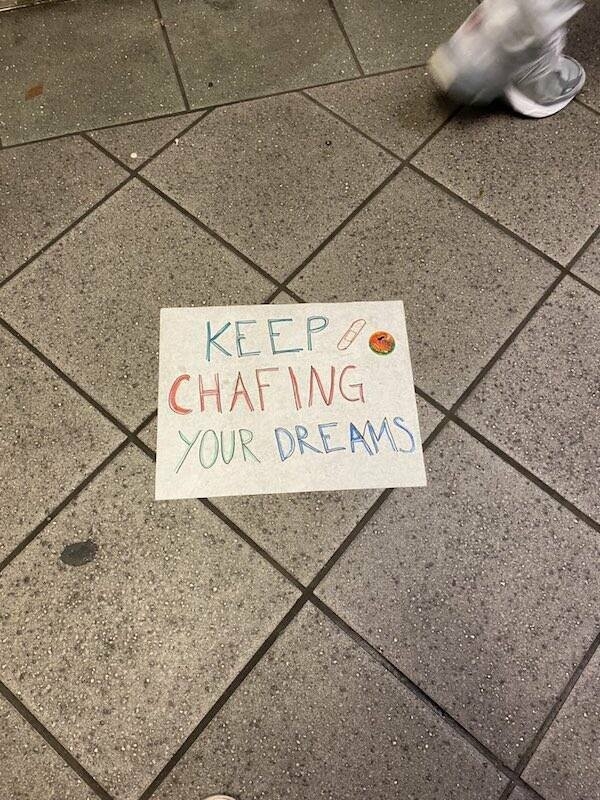 KEEP
CHAFING
YOUR DREAMS